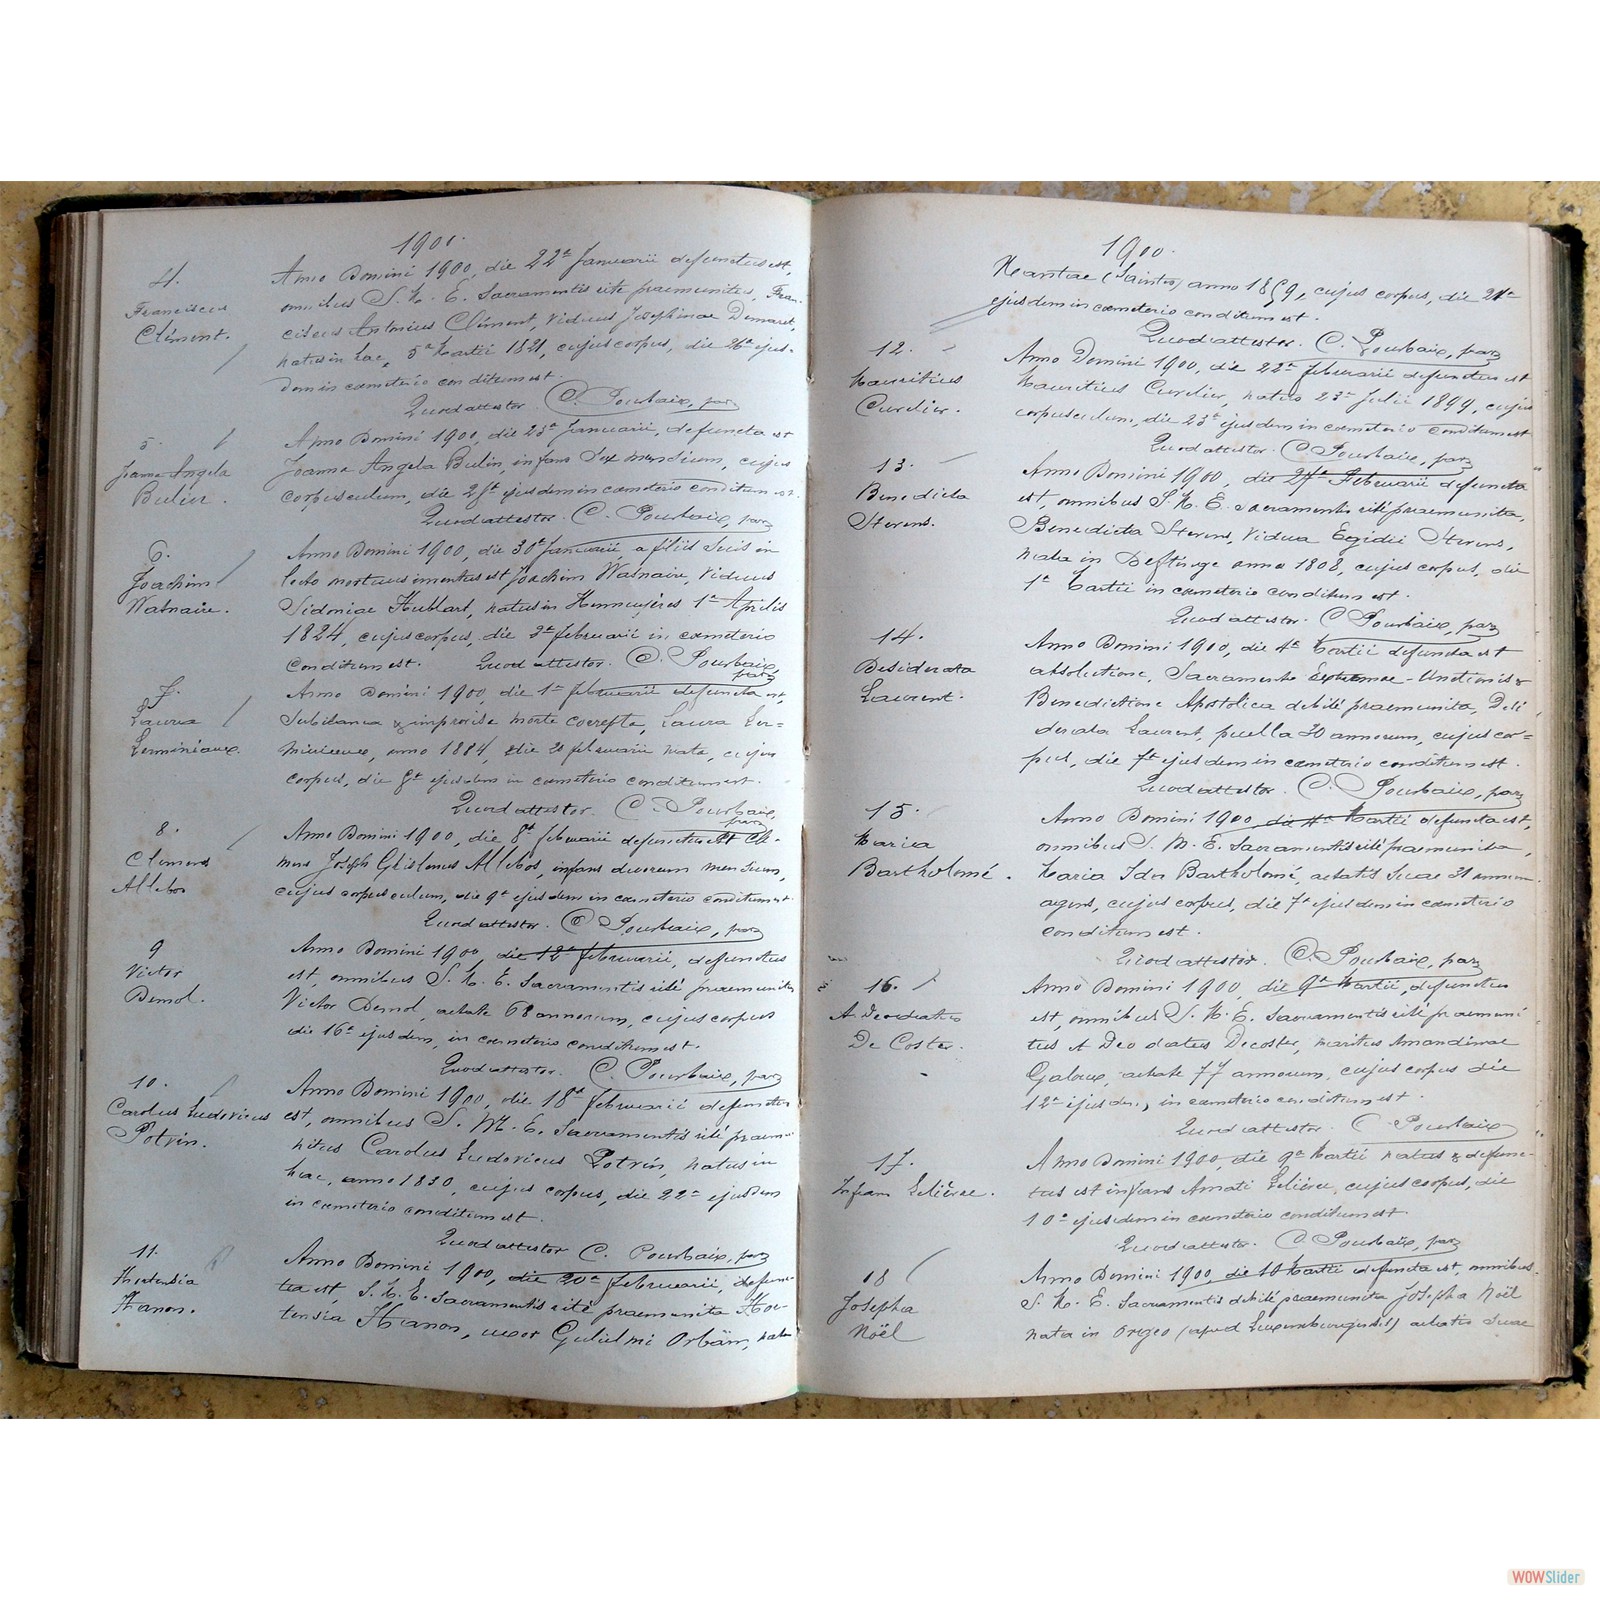 1900.
4.
Franciscus
Clément.
Anno Domini 1900, die 22ª Januarii defunctus est,
omnibus S. M. E. Sacramentis rite praemunitus, Fran-
ciscus Antonius Clément, viduus Josephinae Demaret,
natus in hac, 5ª Martii 1821, cujus corpus, die 26ª ejus-
dem in cœmeterio conditum est.
Quod attestor. C. Pourbaix, par
5.
Joanna Angela
Bulin.
Anno Domini 1900, die 23ª Januarii, defuncta est
Joanna Angela Bulin, infans sex mensium, cujus
corpusculum, die 25ª ejusdem in cœmeterio conditum est.
Quod attestor. C. Pourbaix, par
6.
Joachim
Watnaire.
Anno Domini 1900, die 30ª Januarii, a filiis suis in
lecto mortuus inventus est Joachim Watnaire, viduus
Sidoniae Hublart, natus in Hennuyères 1ª Aprilis
1824, cujus corpus, die 2ª februarii in cœmeterio
conditum est. Quod attestor. C. Pourbaix
par
7.
Laura
Lerminiaux.
Anno Domini 1900, die 1ª februarii defuncta est,
subitanea & improvisa morte correpta, Laura Ler-
miniaux, anno 1884, die 20 februarii nata, cujus
corpus, die ejusdem in cœmeterio conditum est.
Quod attestor. C. Pourbaix,
par
8.
Clemens
Allebos
Anno Domini 1900, die 8ª februarii defunctus est Cle-
mens Joseph Ghislenus Allebos, infans duorum mensium,
cujus corpusculum, die 9ª ejusdem in cœmeterio conditum est.
Quod attestor. C. Pourbaix, par
9
Victor
Demol.
Anno Domini 1900, die 12ª februarii, defunctus
est, omnibus S. M. E. Sacramentis rité praemunitus
Victor Demol, aetate 68 annorum, cujus corpus
die 16ª ejusdem, in cœmeterio conditum est.
Quod attestor. C. Pourbaix, par
10.
Carolus Ludovicus
Potvin.
Anno Domini 1900, die 18ª februarii defunctus
est, omnibus S. M. E. Sacramentis rité praemu-
nitus Carolus Ludovicus Potvin, natus in
hac, anno 1830, cujus corpus, die 22ª ejusdem
in cœmeterio conditum est.
Quod attestor C. Pourbaix, par
11.
Hortensia
Hanon.
Anno Domini 1900, die 20ª februarii, defunc-
ta est S. M. E. Sacramentis rité praemunita Hor-
tensia Hanon, uxor Gulielmi Orbán, nata
1900.
(Saintes) anno 1859, cujus corpus, die
ejusdem in cœmeterio conditum est.
Quod attestor. C. Pourbaix, par
12.
Mauritius
Cordier.
Anno Domini 1900, die 22ª februarii defunctus est
Mauritius Cordier, natus 23ª Julii 1899, cujus
corpusculum, die 23ª ejusdem in cœmeterio conditum est
Quod attestor. C. Pourbaix, par
13.
Benedicta
Sterens.
Anno Domini 1900, die 27ª Februarii defuncta
est, omnibus S. M. E. Sacramentis rité praemunita,
Benedicta Sterens, vidua Egidii Sterens,
nata in Deftinge anno 1808, cujus corpus, die
1ª Martii in cœmeterio conditum est.
Quod attestor. C Pourbaix, par
14.
Desiderata
Laurent.
Anno Domini 1900, die 4ª Martii defuncta est
absolutione, Sacramento Extremae-Unctionis &
Benedictione Apostolica debité praemunita, Desi
derata Laurent, puella 30 annorum, cujus cor=
pus, die 7ª ejusdem in cœmeterio conditum est.
Quod attestor. C. Pourbaix, par
15.
Maria
Bartholomé.
Anno Domini 1900, die 4ª Martii defuncta est,
omnibus S. M. E. Sacramentis rité praemunita,
Maria Ida Bartholomé, aetatis suae 31 annum
agens, cujus corpus, die 7ª ejusdem in cœmeterio
conditum est.
Quod attestor. C. Pourbaix, par
16.
A Deodatus
De Coster.
Anno Domini 1900, die 9ª Martii, defunctus
est, omnibus S. M. E. Sacramentis rité praemuni-
tus A Deo datus Decoster, maritus Amandinae
Galoux, aetate 77 annorum, cujus corpus die
12ª ejusdem, in cœmeterio conditum est.
Quod attestor. C Pourbaix
17.
Infans Lelièvre.
Anno Domini 1900, die 9ª Martii natus & defunc-
tus est infans Amati Lelièvre, cujus corpus, die
10ª ejusdem in cœmeterio conditum est.
Quod attestor. C. Pourbaix, par
18
Josepha
Noël
Anno Domini 1900, die 10 Martii defuncta est, omnibus
S. M. E. Sacramentis debité praemunita Josepha Noël
nata in Orgeo (apud Luxemburgenses) aetatis suae
WOWSlider